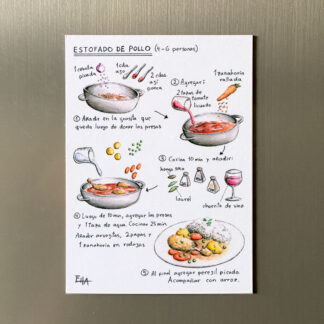 ESTOFADO DE POLLO (4-6 personas)
1 cebolla picada
1 cda ajo
2 cdas ají panca
1 zanahoria rallada
② Agregar:
2 tazas de tomate licuado
① Añadir en la grasita que
queda luego de dorar las presas
③ Cocina 10 min y añadir:
hongo seco
laurel
chorrito de vino
④ Luego de 10 min, agregar las presas
y 1 taza de agua. Cocinar 25 min.
Añadir arvejitas, 2 papas y
1 zanahoria en rodajas
⑤ Al final agregar perejil picado.
Acompañar con arroz.